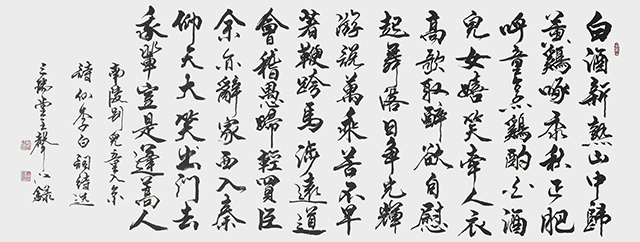 白酒新熟山中歸
黃鷄啄黍秋正肥
呼童烹鷄酌白酒
兒女嬉笑牽人衣
高歌取醉欲自慰
起舞落日爭光輝
游說萬乘苦不早
著鞭跨馬涉遠道
會稽愚婦輕買臣
余亦辭家西入秦
仰天大笑出門去
我輩豈是蓬蒿人
南陵別兒童入京
詩仙李白詞
堂主